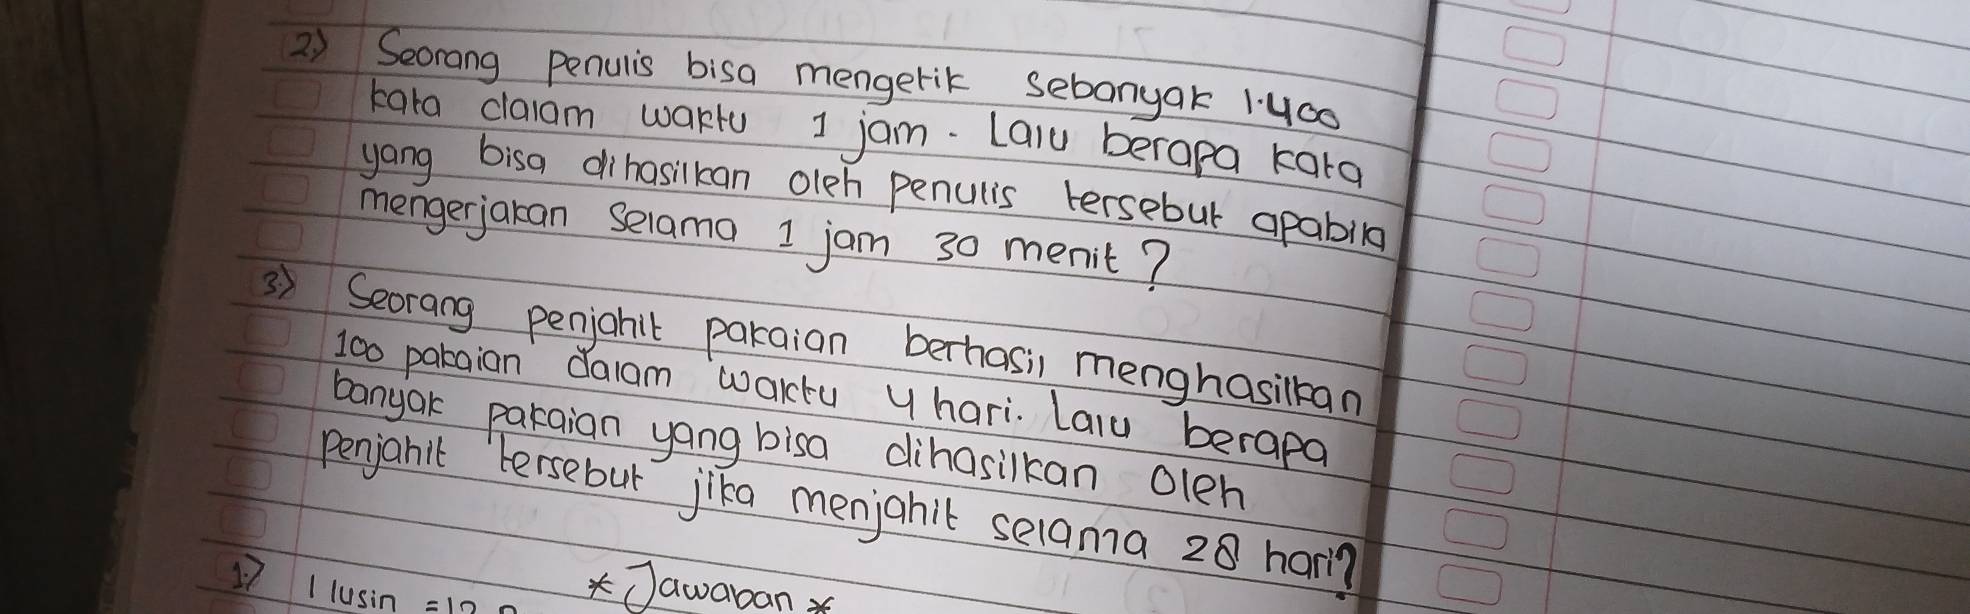 2.) Seorang penulis bisa mengetik sebanyak 1.400
kata dalam waktu 1 jam. Lalu berapa kata
yang bisa dihasilkan oleh penulis tersebut apabila
mengerjakan selama 1 jam 30 menit?
3.) Seorang penjahit pakaian berhasil menghasilkan
100 pakaian dalam waktu 4 hari. Lalu berapa
banyak pakaian yang bisa dihasilkan oleh
penjahit tersebut jika menjahit selama 28 hari?
* Jawaban *
1.) 1 lusin = 12